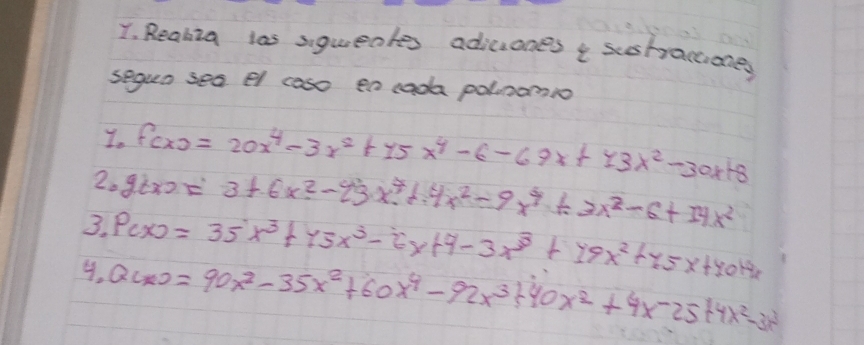 1. Realiza las siguientes adiciones y sustracciones
segun sea el caso en cada polinomio
1. f(x) = 20x⁴ - 3x² + 15x⁴ - 6 - 69x + 13x² - 30x + 8
2. g(x) = 3 + 6x² - 13x⁴ + 4x² - 9x⁴ + 3x² - 6 + 14x²
3. P(x) = 35x³ + 15x³ - 6x + 9 - 3x³ + 19x² + 15x + 40 + 9x
4. Q(x) = 90x² - 35x² + 60x⁴ - 92x³ + 40x² + 4x - 25 + 4x² - 3x²